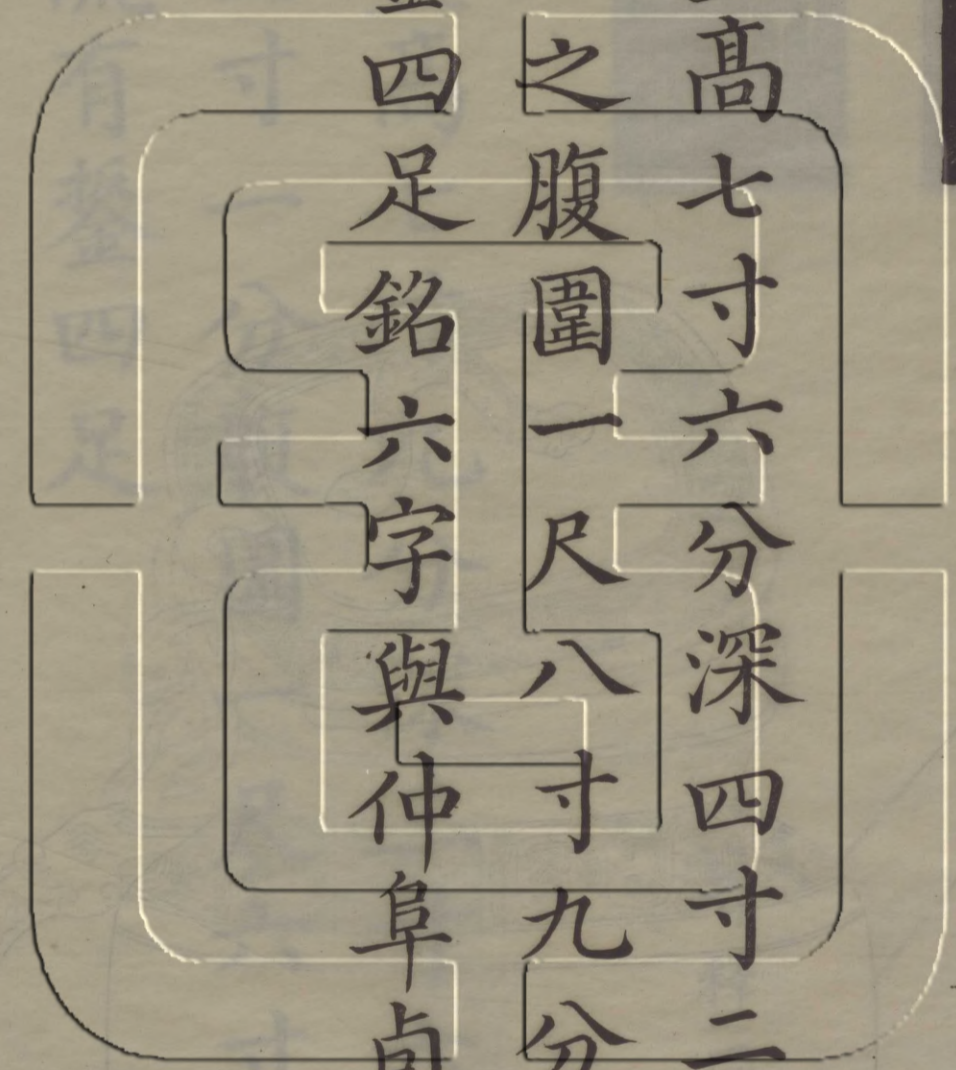 高七寸六分深四寸二
之腹圍一尺八寸九分
四足銘六字與仲阜卣